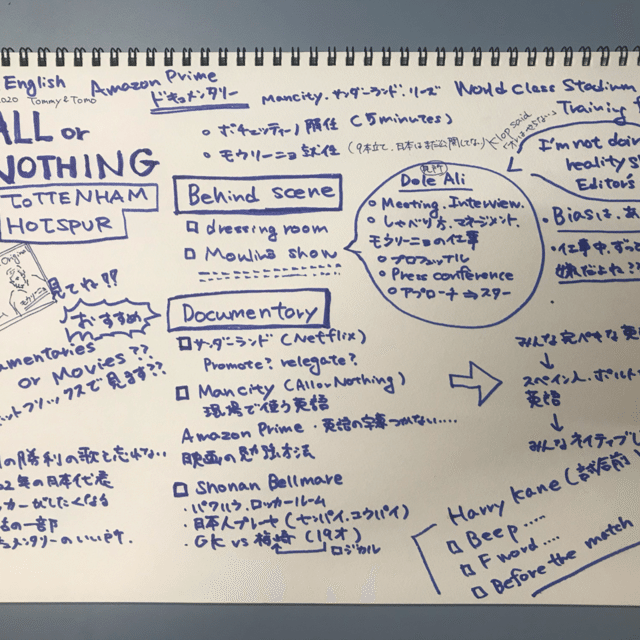 English
2020 Tommy & Tomo
Amazon Prime
ドキュメンタリー
Mancity. サンダーランド. リーズ
World Class Stadium
Training
ALL or
NOTHING
TOTTENHAM
HOTSPUR
ポチェッティーノ解任 (5minutes)
モウリーニョ就任 (9本立て、日本はまだ公開してない)
Klop said
I'm not doin
reality s
Editor's
Behind scene
dressing room
Mourinho show
Dele Ali
Meeting. Interview.
しゃべり方. マネージメント.
モウリーニョの仕事
プロフェッショナル
Press conference
アプローチ ⇆ スター
Biasは、
仕事中、ず
嫌だよね??
Origin
モウリーニョ
見てね!!
おすすめ
Documentory
サンダーランド (Netflix)
Promote? relegate?
Mancity (AllorNothing)
現場で使う英語
Amazon Prime・英語の字幕つかない....
映画の勉強方法
Shonan Bellmare
・パワハラ. ロッカールーム
・日本人プレーヤ (センパイ. コウハイ)
・GK vs 梅崎 (19才)
ロジカル
cumentories
or Movies??
ットフリックスで見ます??
の勝利の歌を忘れない
02年の日本代表
ッカーがしたくなる
の一部
キュメンタリーのいい所.
みんな完ぺきな英
↓
スペイン人. ポルト
英語
↓
みんなネイティブじ
Harry Kane (試合前
Beep.....
F word....
Before the match